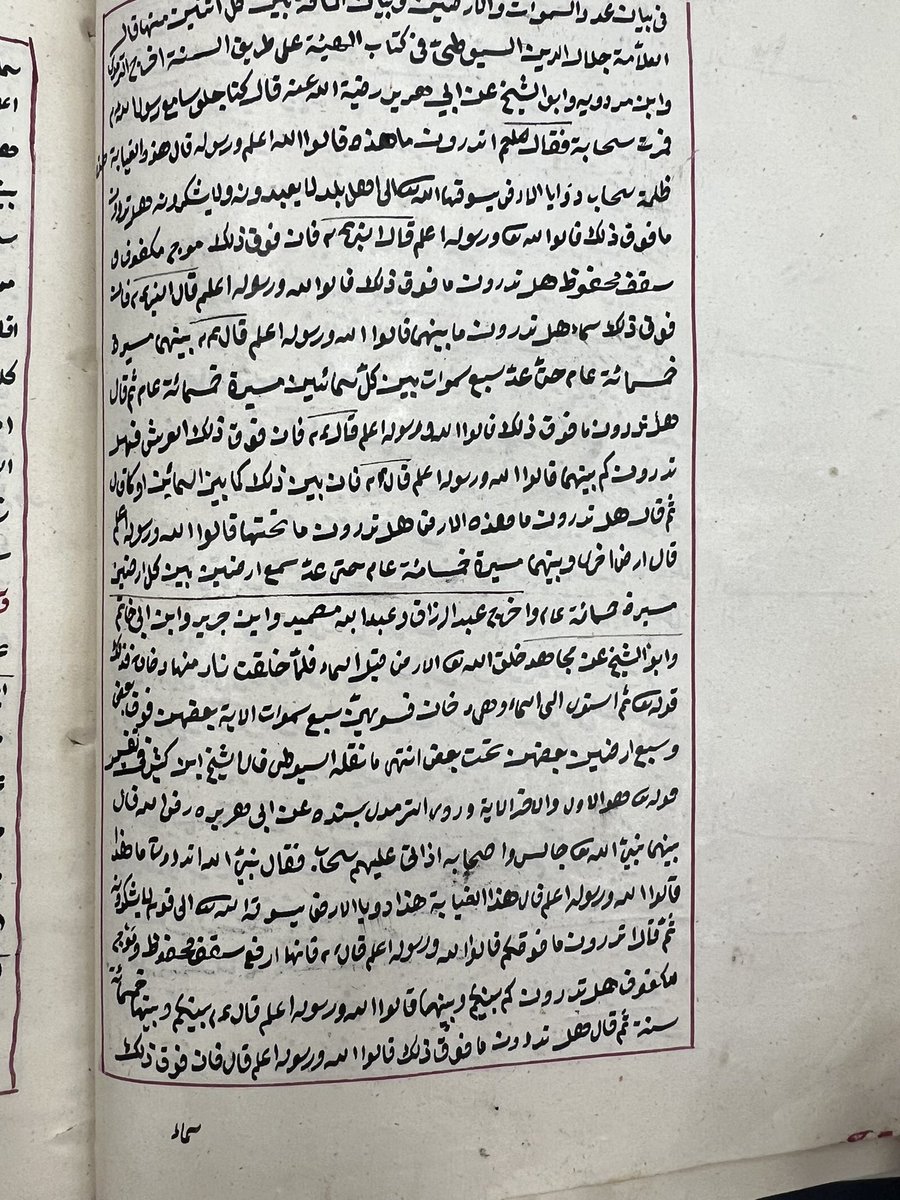 في بيان عدد السموات والارضين وبيان المسافة بين كل اثنين منها قال
العلامة جلال الدين السيوطي في كتاب الهيئة على طريق السنة اخرج الترمذي
وابن مردويه وابو الشيخ عن ابي هريرة رضي الله عنه قال كنا جلوسا مع رسول الله
فمرت سحابة فقال صلعم اتدرون ما هذه قالوا الله اعلم ورسوله قال هذه الغيابة هذه
ظلمة سحاب روايا الارض يسوقها الله الى اهل بلد لا يعبدونه ولا يشكرونه هل تدرون
ما فوق ذلك قالوا الله ورسوله اعلم قال فان فوق ذلك موج مكفوف و
سقف محفوظ هل تدرون ما فوق ذلك قالوا الله ورسوله اعلم قال فان
فوق ذلك سماء هل تدرون ما بينهما قالوا الله ورسوله اعلم قال عم بينهما مسيرة
خمسمائة عام حتى عد سبع سموات بين كل سمائين مسيرة خمسمائة عام ثم قال
هل تدرون ما فوق ذلك قالوا الله ورسوله اعلم قال عم فان فوق ذلك العرش فهل
تدرون كم بينهما قالوا الله ورسوله اعلم قال عم فان بين ذلك كما بين السمائين او كما قال
ثم قال هل تدرون ما هذه الارض هل تدرون ما تحتها قالوا الله ورسوله اعلم
قال ارض اخرى وبينهما مسيرة خمسمائة عام حتى عد سبع ارضين بين كل ارضين
مسيرة خمسمائة عام واخرج عبد الرزاق وعبد ابن حميد وابن جرير وابن ابي حاتم
وابو الشيخ عن مجاهد خلق الله الارض قبل السماء فلما خلقت ثار منها دخان فذلك
قوله ثم استوى الى السماء وهي دخان فسويهن سبع سموات الاية بعضهن فوق بعض
وسبع ارضين بعضهن تحت بعض انتهى ما نقله السيوطي قال الشيخ ابن كثير في تفسير
قوله هو الاول والاخر الاية وروى الترمذي بسنده عن ابي هريرة رضي الله قال
بينما نبي الله جالس واصحابه اذ اتى عليهم سحاب فقال نبي الله اتدرون ما هذا
قالوا الله ورسوله اعلم قال هذا الغيابة هذا روايا الارض يسوقه الله الى قوم لا يشكرونه
ثم قال اتدرون ما فوقكم قالوا الله ورسوله اعلم قال عم فانها ارفع سقف محفوظ وموج
مكفوف هل تدرون كم بينكم وبينهما قالوا الله ورسوله اعلم قال عم بينكم وبينها خمسمائة
سنة ثم قال هل تدرون ما فوق ذلك قالوا الله ورسوله اعلم قال فان فوق ذلك
سماء